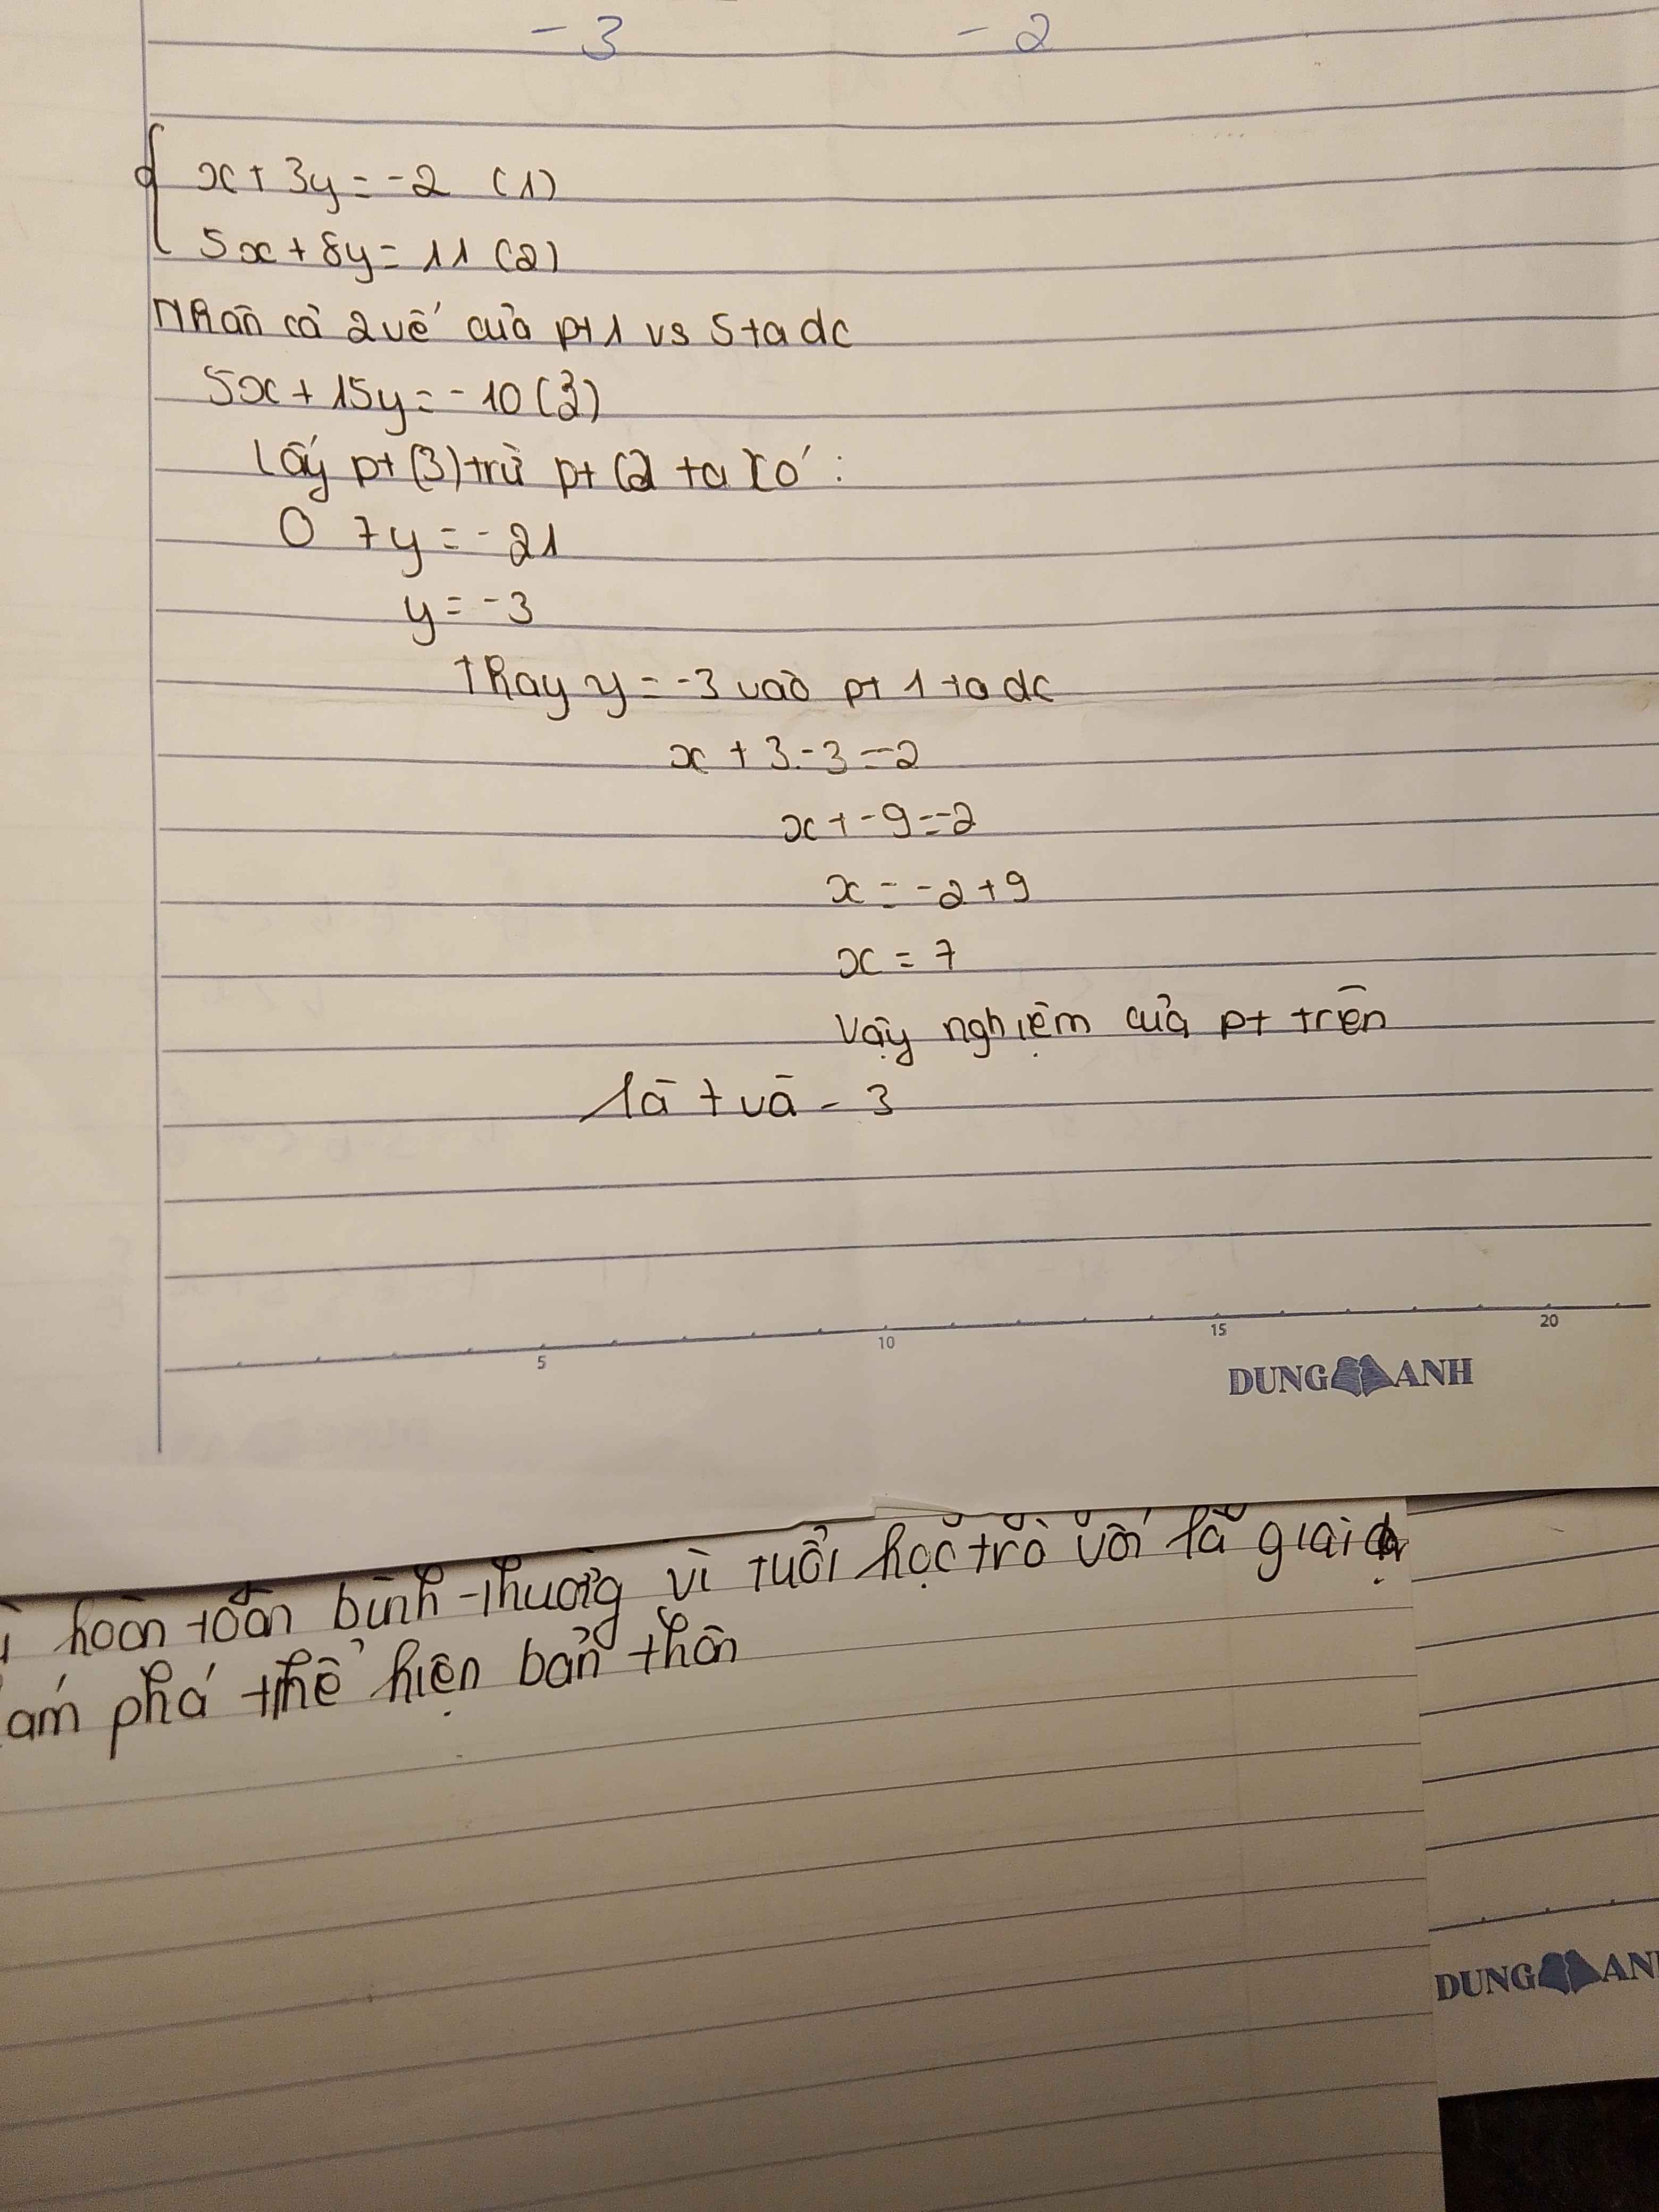 -3 -2
x + 3y = -2 (1)
5x + 8y = 11 (2)
Nhân cả 2 vế của pt 1 vs 5 ta dc
5x + 15y = -10 (3)
Lấy pt (3) trừ pt (2 ta có :
0 7y = -21
y = -3
Thay y = -3 vào pt 1 ta dc
x + 3.-3 = -2
x + -9 = -2
x = -2 + 9
x = 7
Vậy nghiệm của pt trên
là 7 và -3
5 10 15 20
DUNG ANH
hoàn toàn bình thường vì tuổi học trò vốn là giai
ám phá thể hiện bản thân
DUNG AN